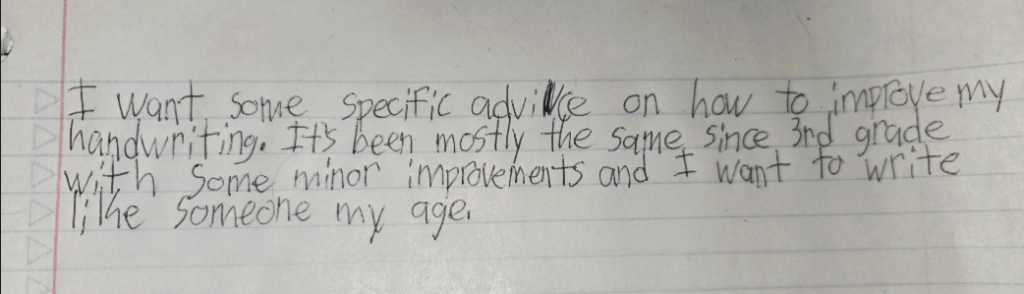 I want some specific advice on how to improve my
handwriting. It's been mostly the same since 3rd grade
with some minor improvements and I want to write
like someone my age.